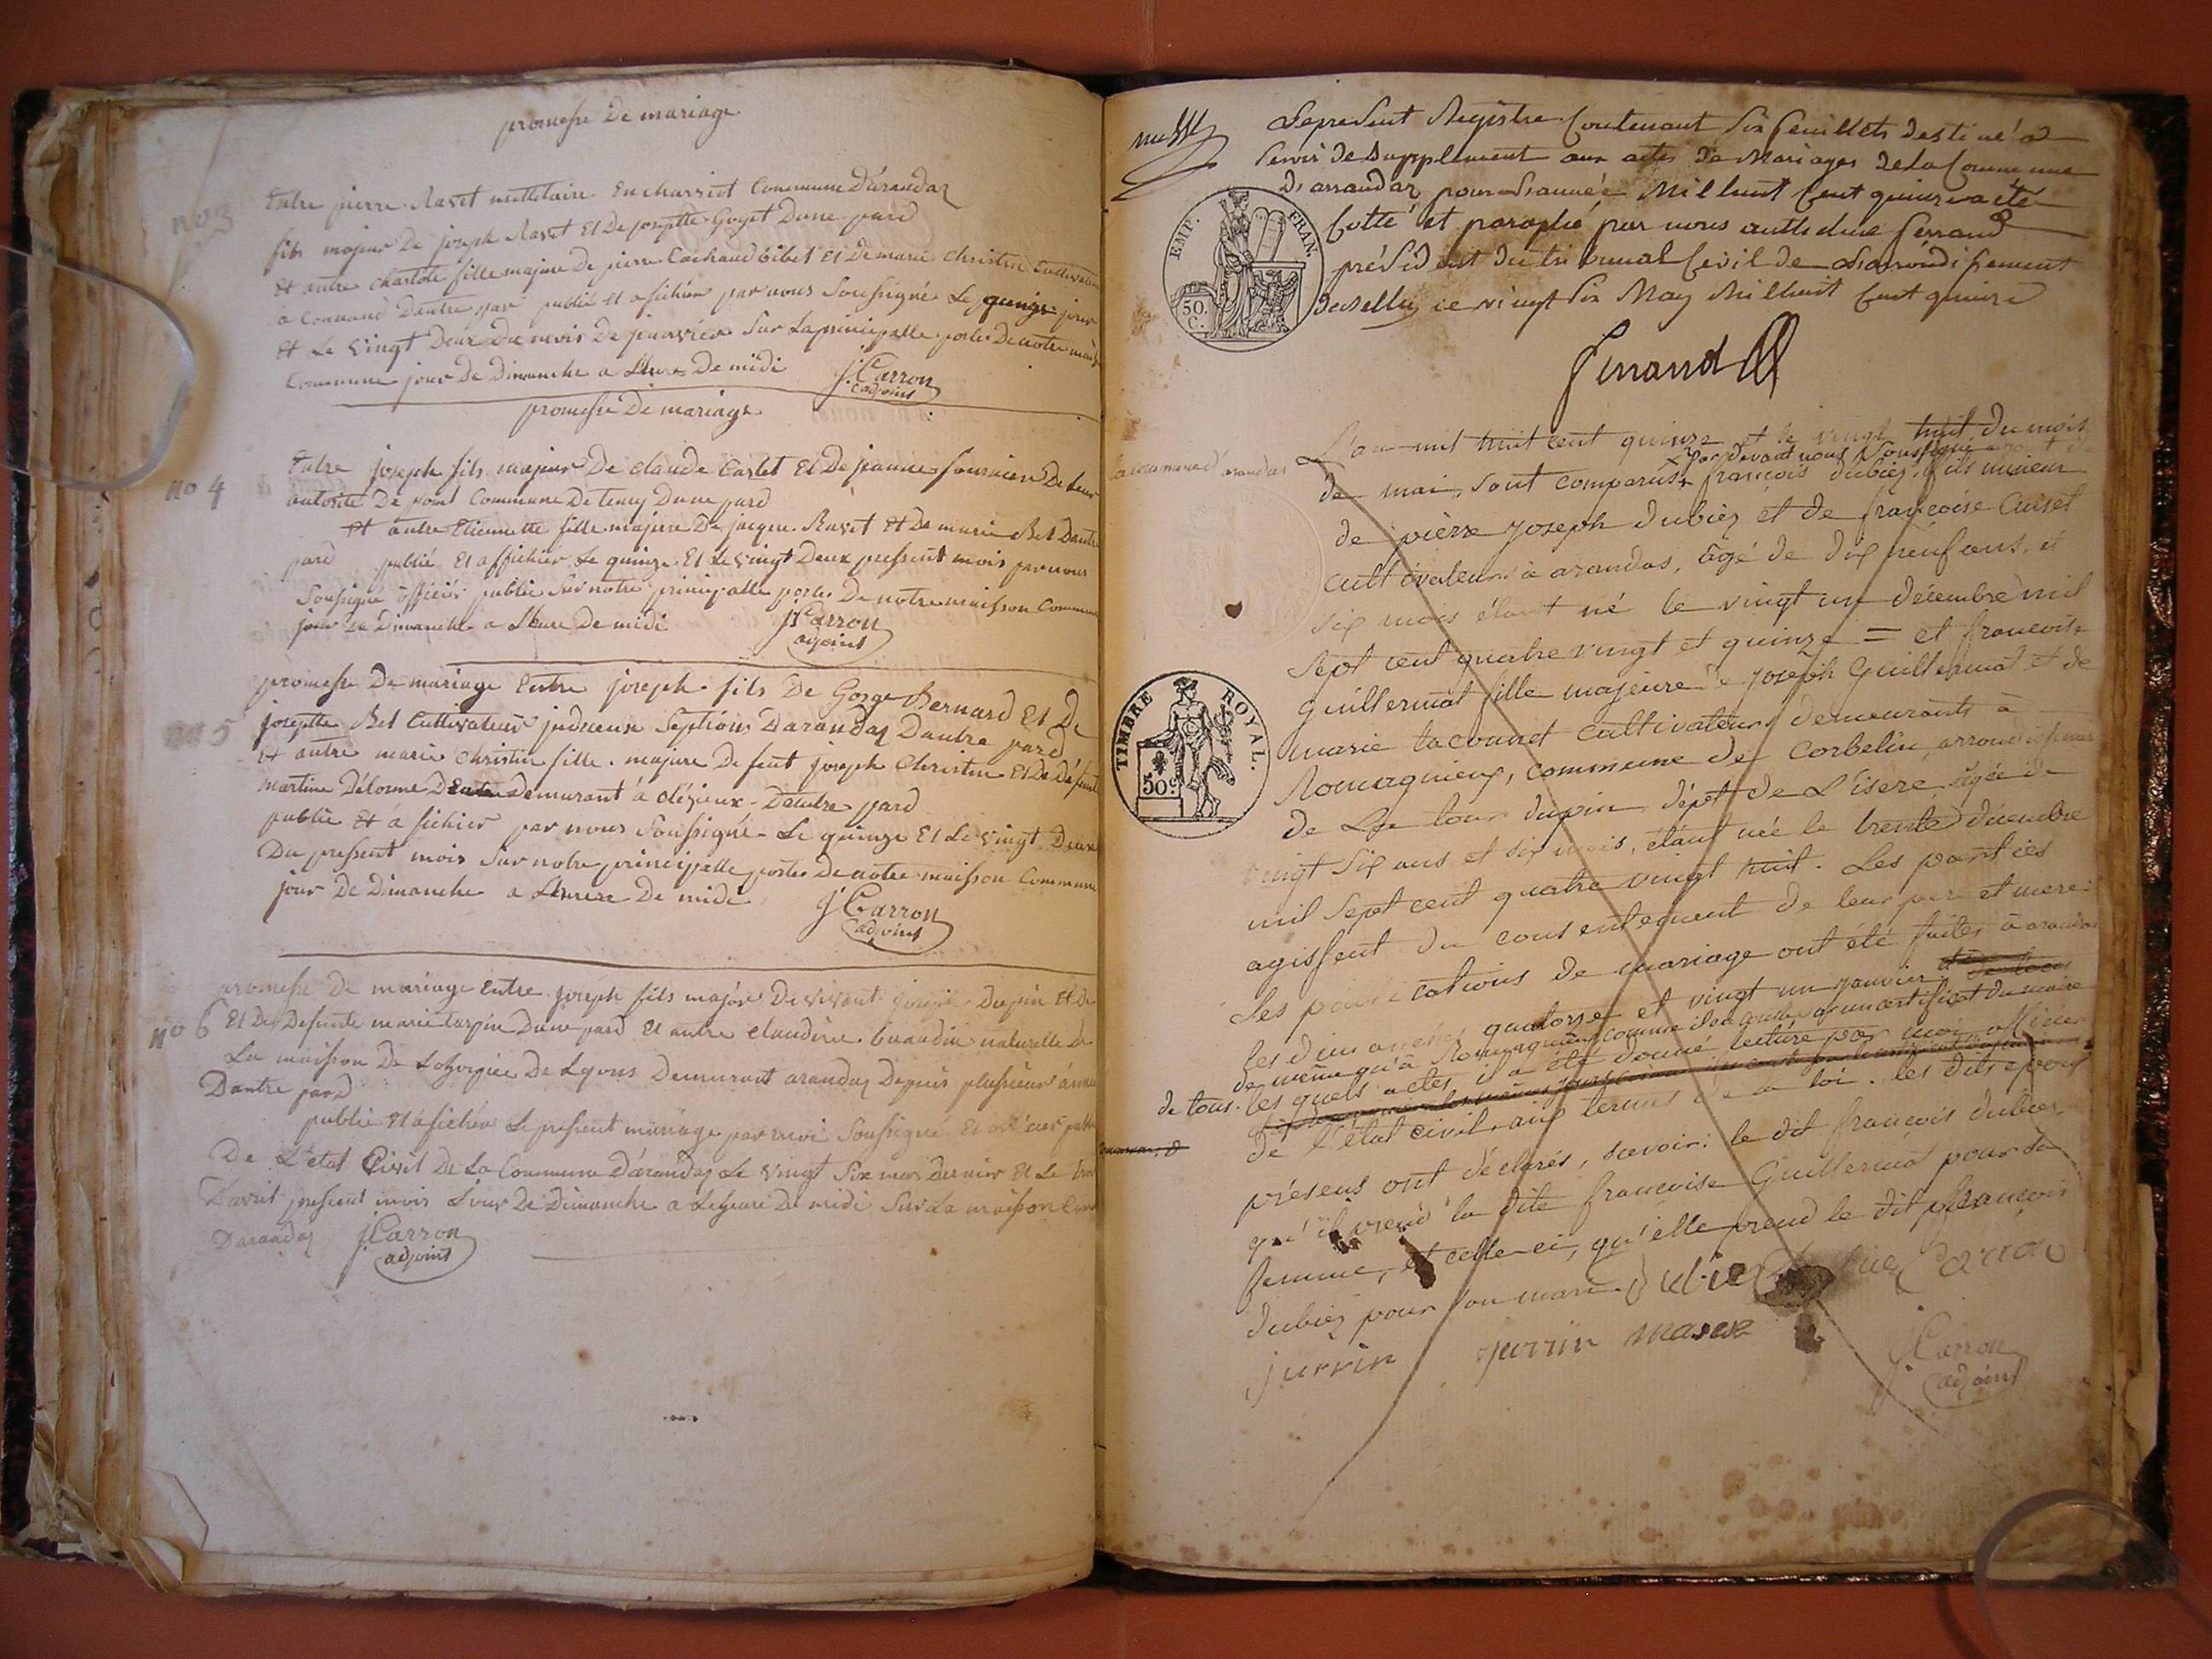 promesse De mariage
no 3
Entre pierre Ravet millitaire En charriot Commune D'arandaz
fils majeur De joseph Ravet Et De josephte Goyet Dune pard
Et autre charlote fille majeure De pierre Cochaud bibet Et De marie christin Cultivateur
a Dautre par publié Et afichéz par nous Soussigné Le quinze jour
Et Le vingt Deux Du mois De janvier Sur La principalle porte De notre
Commune jour De Dimanche a L'hure De midi
J. Carron
adjoint
promesse De mariage
no 4
Entre joseph fils majeur De claude Carlet Et De jeanne fournier De leur
autorité De pont Commune De tency Dune pard
Et autre Etiennette fille majeure De jacque Ravet Et De marie Bel Dautre
pard publié Et affichier Le quinze Et Le vingt Deux pressent mois par nous
Soussigné officier publie Sur notre principalle porte De notre maisson Commune
jour De Dimanche a L'hure De midi
J. Carron
adjoint
no 5
promesse De mariage Entre joseph fils De Gorge Bernard Et De
josephte Bel Cultivateur Darandaz Dautre pard
Et autre marie christin fille majeure De feut joseph Christin Et De Défunte
martine Délorme Demurant à clézieux Dautre pard
publié Et à fichier par nous Soussigné Le quinze Et Le vingt Deux
Du pressent mois Sur notre principalle porte De notre maisson Commune
jour De Dimanche a L'hurre De midi
J. Carron
adjoint
no 6
promesse De mariage Entre joseph fils major De vivant joseph Dupin Et De
Et De Defunte marie turpin Dune pard Et autre claudine naturelle De
La maisson De De Lyons Demurant arandaz Depuis plussieur année
Dautre pard
publié Et afichéz Le pressent mariage par moi Soussigné Et officier public
De L'etat Civil De La Commune D'arandaz Le vingt Six mars Dernier Et Le trois
D'avril pressent mois Jour De Dimanche a De midi Sur La maisson
Darandaz
J. Carron
adjoint
Le present Registre Contenant Six feuillets destiné a
Servir de Supplement aux actes de Mariages de La Commune
d'arrandaz pour L'année Mil huit Cent quinze a été
Cotté et paraphé par nous anthelme ferrand
président du tribunal Civil de L'arrondissement
de Belley ce vingt Six May Mil huit Cent quinze
ferrand
EMP. FRAN.
50. C.
TIMBRE ROYAL.
50c
la commune d'arandas
L'an mil huit cent quinze et le vingt huit du mois
par devant nous Soussigné adjoint de
de mai, sont comparus françois dubiez, fils mineur
de pierre joseph dubiez et de françoise Cuiset
cultivateurs à arandas, âgé de dix neuf ans, et
six mois étant né le vingt un décembre mil
sept cent quatre vingt et quinze = et francoise
guillermat fille majeure de joseph guillermat et de
marie lacounet cultivateurs demeurants à
Romagnieux, commune de Corbelin, arrondissement
de La tour dupin, dépt de L'isere, âgée de
vingt six ans et six mois, étant née le trente décembre
mil sept cent quatre vingt huit. Les parties
agissent du consentement de leur pere et mere.
Les publications de mariage ont été faites à arandas
les dimanches quatorze et vingt un janvier
de même qu'à Romagnieux comme il en conste par un certificat du maire
de tous. les quels actes il a été donné lecture par moi officier
de l'état civil, aux termes de la loi. les dits epoux
présens ont déclarés, savoir: le dit francois dubiez
qu'il prend la dite francoise Guillermat pour sa
femme, et celle ci, qu'elle prend le dit francois
dubiez pour son mari.
Carron
jurrin jurrin
J. Carron
adjoint